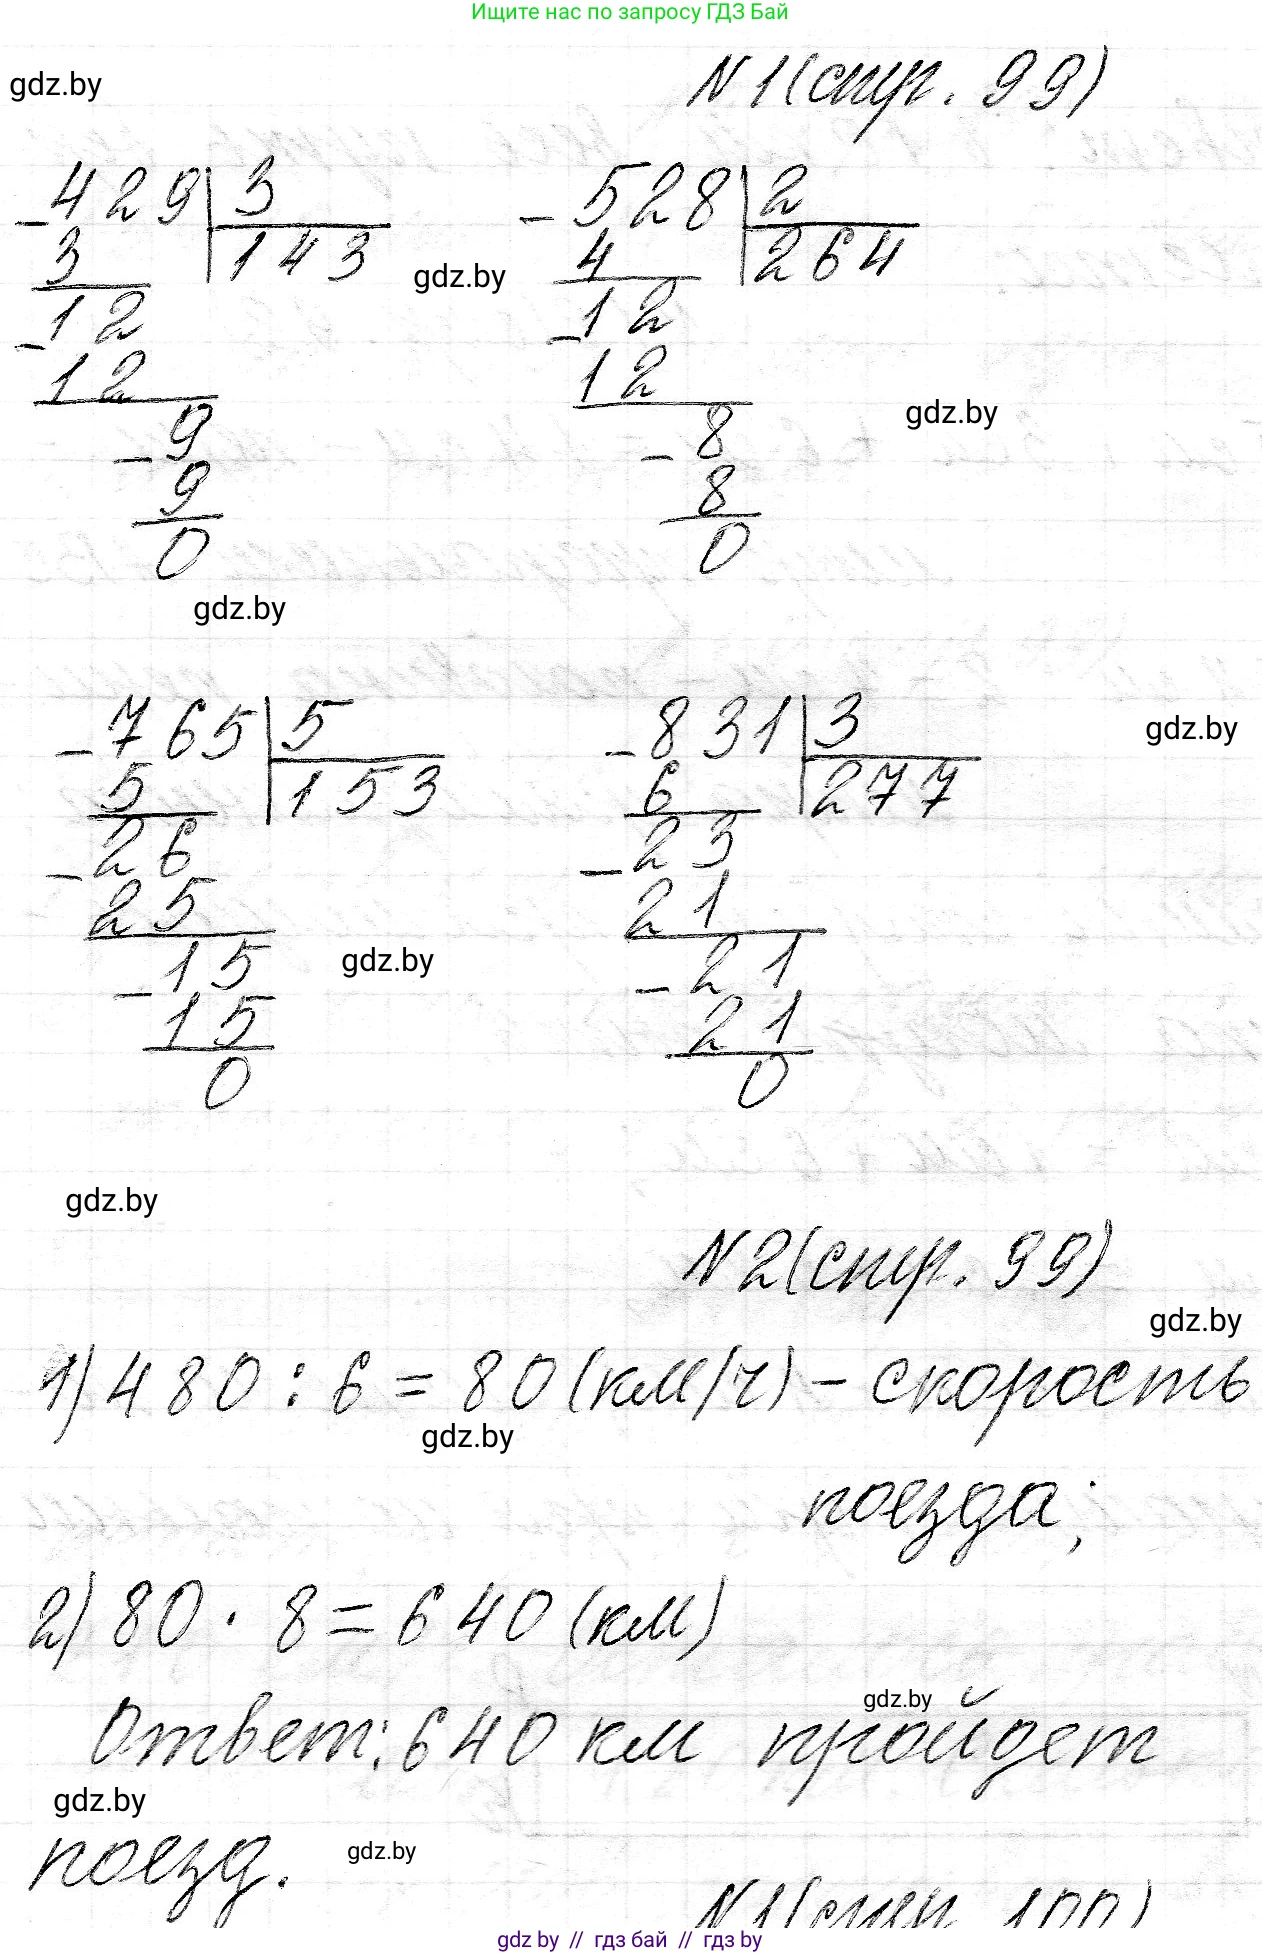 Ищите нас по запросу ГДЗ Бай
gdz.by
N1(стр. 99)
-429|3
3 143
gdz.by
-12
12
-9
9
0
-528|2
4 264
-12
12
gdz.by
-8
8
0
gdz.by
-765|5
5 153
-26
25
-15
15
0
gdz.by
-831|3
6 277
gdz.by
-23
21
-21
21
0
gdz.by
N2(стр. 99)
gdz.by
1) 480 : 6 = 80 (км/ч) - скорость
gdz.by
поезда;
2) 80 · 8 = 640 (км)
gdz.by
Ответ: 640 км пройдет
gdz.by
поезд.
gdz.by
N1(стр. 100)
gdz by // гдз бай // гдз by